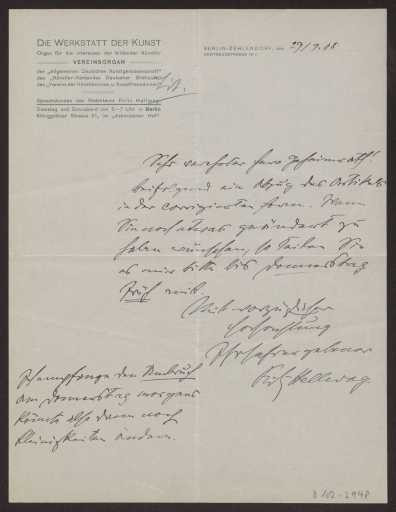 DIE WERKSTATT DER KUNST
Organ für die Interessen der bildenden Künstler
VEREINSORGAN
der „Allgemeinen Deutschen Kunstgenossenschaft“
des
Sprechstunden des Redakteurs Fritz Hellwag:
Dienstag und Sonnabend von 5–7 Uhr in Berlin
Königgrätzer Strasse 21, im
BERLIN-ZEHLENDORF, den 29/9.08
Sehr verehrter Herr Geheimrath!
beifolgend ein Abzug des Artikels
in der corrigierten Form. Wenn
Sie noch etwas geändert zu
haben wünschen, so teilen Sie
es mir bitte bis Donnerstag
früh mit.
Mit vorzüglicher
Hochachtung
Ihr sehr ergebener
Fritz Hellwag.
Ich empfange den Umbruch
am Donnerstag morgens
könnte also dann noch
Kleinigkeiten ändern.